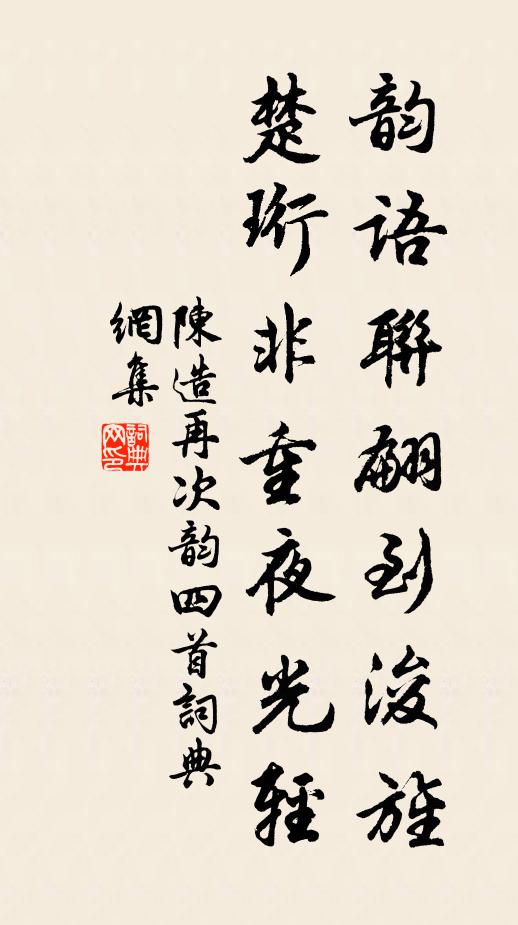 韵語聯翩到浚旌
楚珩非重夜光輕
陳造再次韵四首詞典
網集
詞典
网印